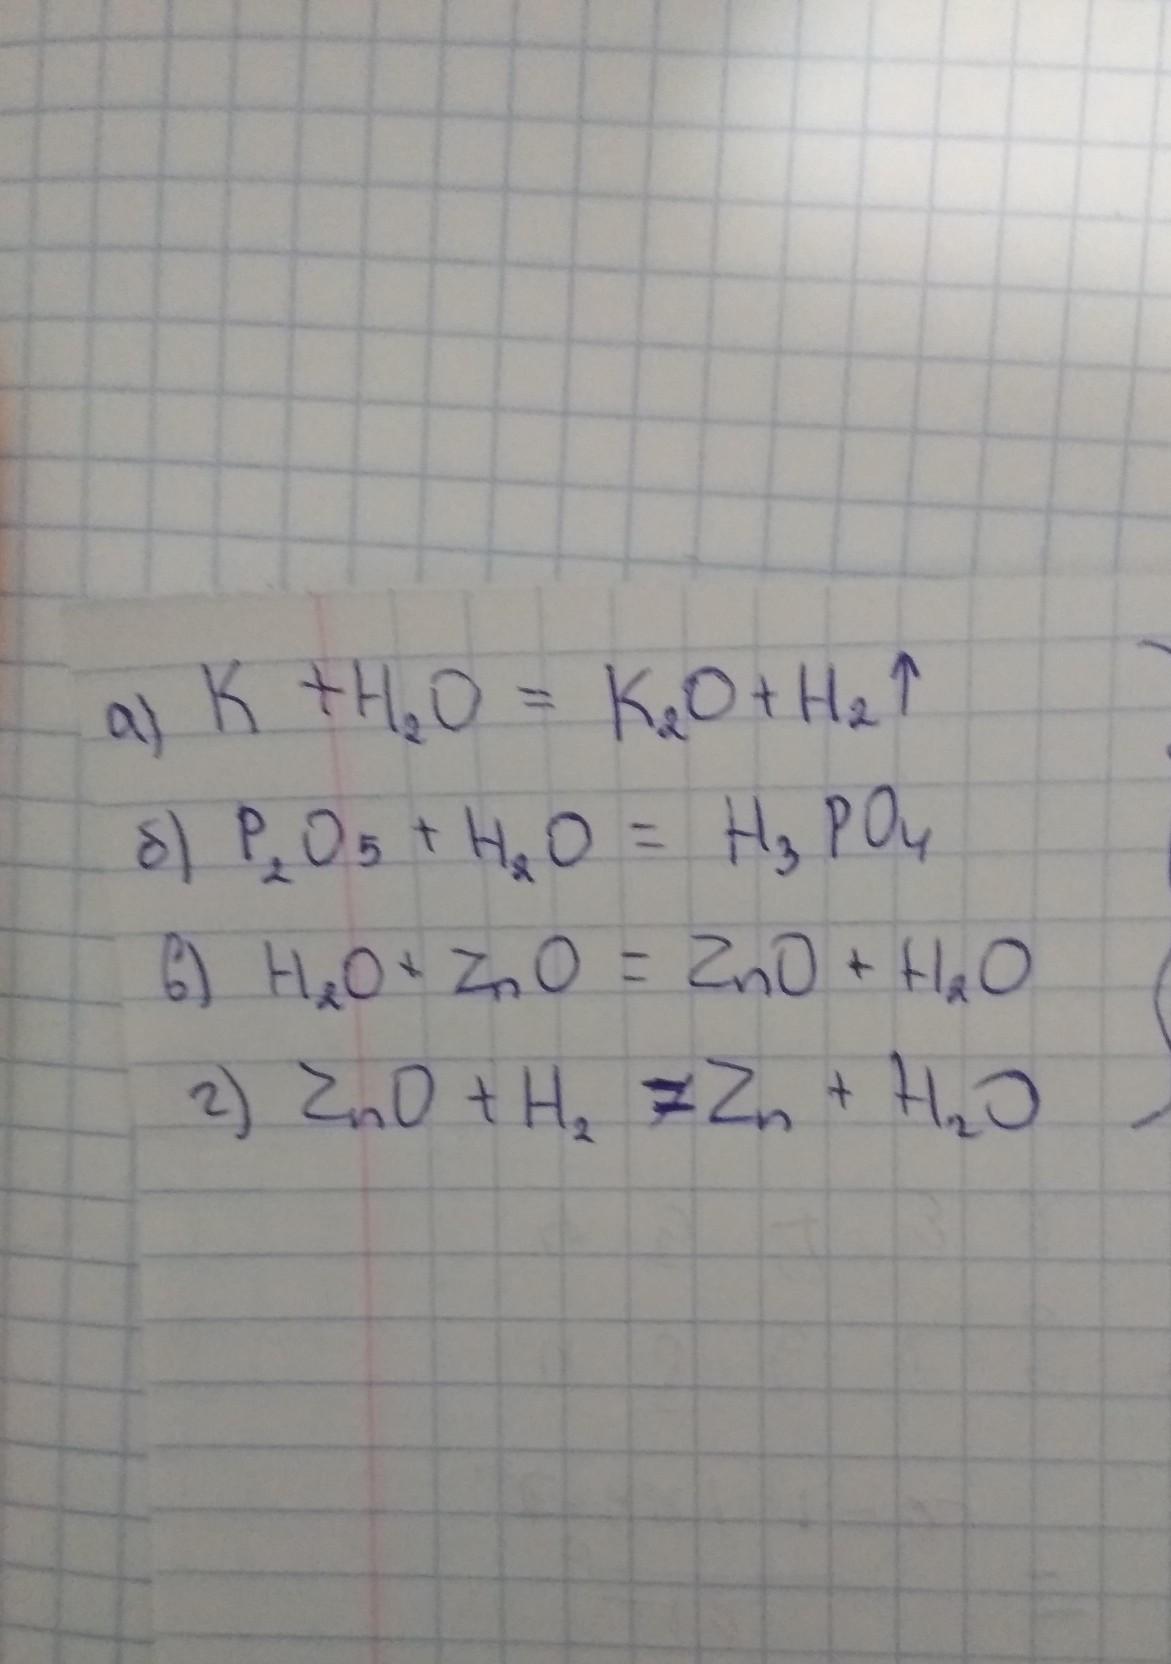 а) K + H₂O = K₂O + H₂↑
б) P₂O₅ + H₂O = H₃PO₄
в) H₂O + ZnO = ZnO + H₂O
г) ZnO + H₂ = Zn + H₂O